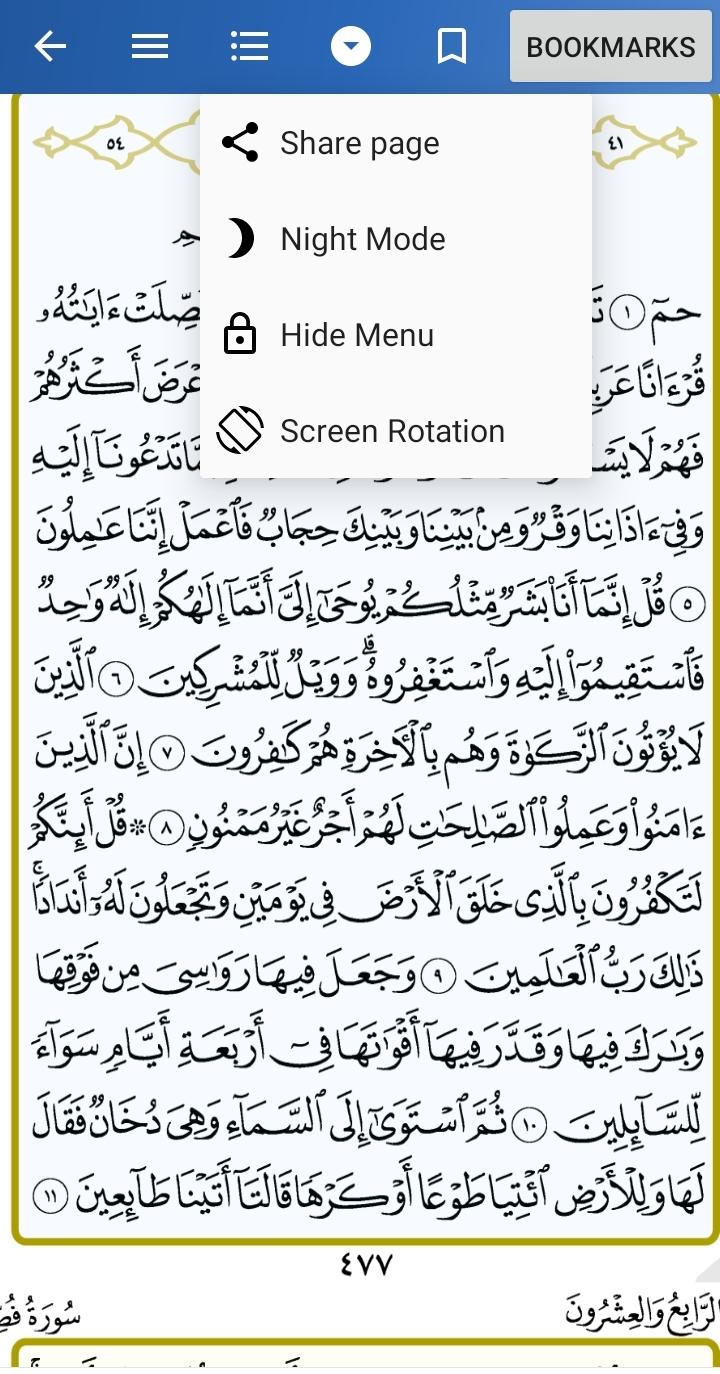 BOOKMARKS
Share page
Night Mode
Hide Menu
Screen Rotation
٤١
٥٤
حمٓ ١
ءَايَٰتُهُۥ
قُرْءَانًا
أَكْثَرُهُمْ
فَهُمْ لَا
تَدْعُونَآ إِلَيْهِ
وَفِىٓ ءَاذَانِنَا وَقْرٌ وَمِنۢ بَيْنِنَا وَبَيْنِكَ حِجَابٌ فَٱعْمَلْ إِنَّنَا عَٰمِلُونَ
٥ قُلْ إِنَّمَآ أَنَا۠ بَشَرٌ مِّثْلُكُمْ يُوحَىٰٓ إِلَىَّ أَنَّمَآ إِلَٰهُكُمْ إِلَٰهٌ وَٰحِدٌ
فَٱسْتَقِيمُوٓا۟ إِلَيْهِ وَٱسْتَغْفِرُوهُ ۗ وَوَيْلٌ لِّلْمُشْرِكِينَ ٦ ٱلَّذِينَ
لَا يُؤْتُونَ ٱلزَّكَوٰةَ وَهُم بِٱلْـَٔاخِرَةِ هُمْ كَٰفِرُونَ ٧ إِنَّ ٱلَّذِينَ
ءَامَنُوا۟ وَعَمِلُوا۟ ٱلصَّٰلِحَٰتِ لَهُمْ أَجْرٌ غَيْرُ مَمْنُونٍ ٨ ۞ قُلْ أَئِنَّكُمْ
لَتَكْفُرُونَ بِٱلَّذِى خَلَقَ ٱلْأَرْضَ فِى يَوْمَيْنِ وَتَجْعَلُونَ لَهُۥٓ أَندَادًا ۚ
ذَٰلِكَ رَبُّ ٱلْعَٰلَمِينَ ٩ وَجَعَلَ فِيهَا رَوَٰسِىَ مِن فَوْقِهَا
وَبَٰرَكَ فِيهَا وَقَدَّرَ فِيهَآ أَقْوَٰتَهَا فِىٓ أَرْبَعَةِ أَيَّامٍ سَوَآءً
لِّلسَّآئِلِينَ ١٠ ثُمَّ ٱسْتَوَىٰٓ إِلَى ٱلسَّمَآءِ وَهِىَ دُخَانٌ فَقَالَ
لَهَا وَلِلْأَرْضِ ٱئْتِيَا طَوْعًا أَوْ كَرْهًا قَالَتَآ أَتَيْنَا طَآئِعِينَ ١١
٤٧٧
ٱلرَّابِعُ وَالْعِشْرُونَ
سُورَةُ